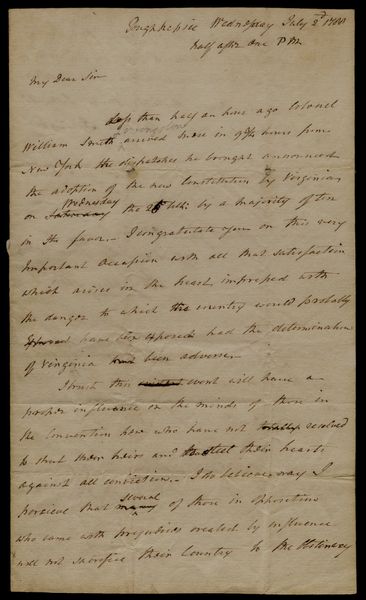 Poughkepsie Wednesday July 2d 1788
half after One P.M.
My Dear Sir
Less than half an hour ago Colonel
Livingston
William Smith arrived here in 9½ hours from
New York the dispatches he brought announced
the adoption of the new Constitution by Virginia
Wednesday
on Saturday the 25 Ult: by a majority of ten
in its favor. I congratulate you on this very
Important Occasion with all that satisfaction
which arises in the heart impressed with
the danger to which the country would probably
have been exposed had the determination
of Virginia been adverse.
I trust this event will have a
proper influence on the minds of those in
the Convention here who have not totally resolved
to shut their Ears and steel their hearts
against all conviction. I do believe, nay I
several
perceive that many of those in opposition
who came with prejudices created by influence
will not sacrifice their Country to the Obstinacy